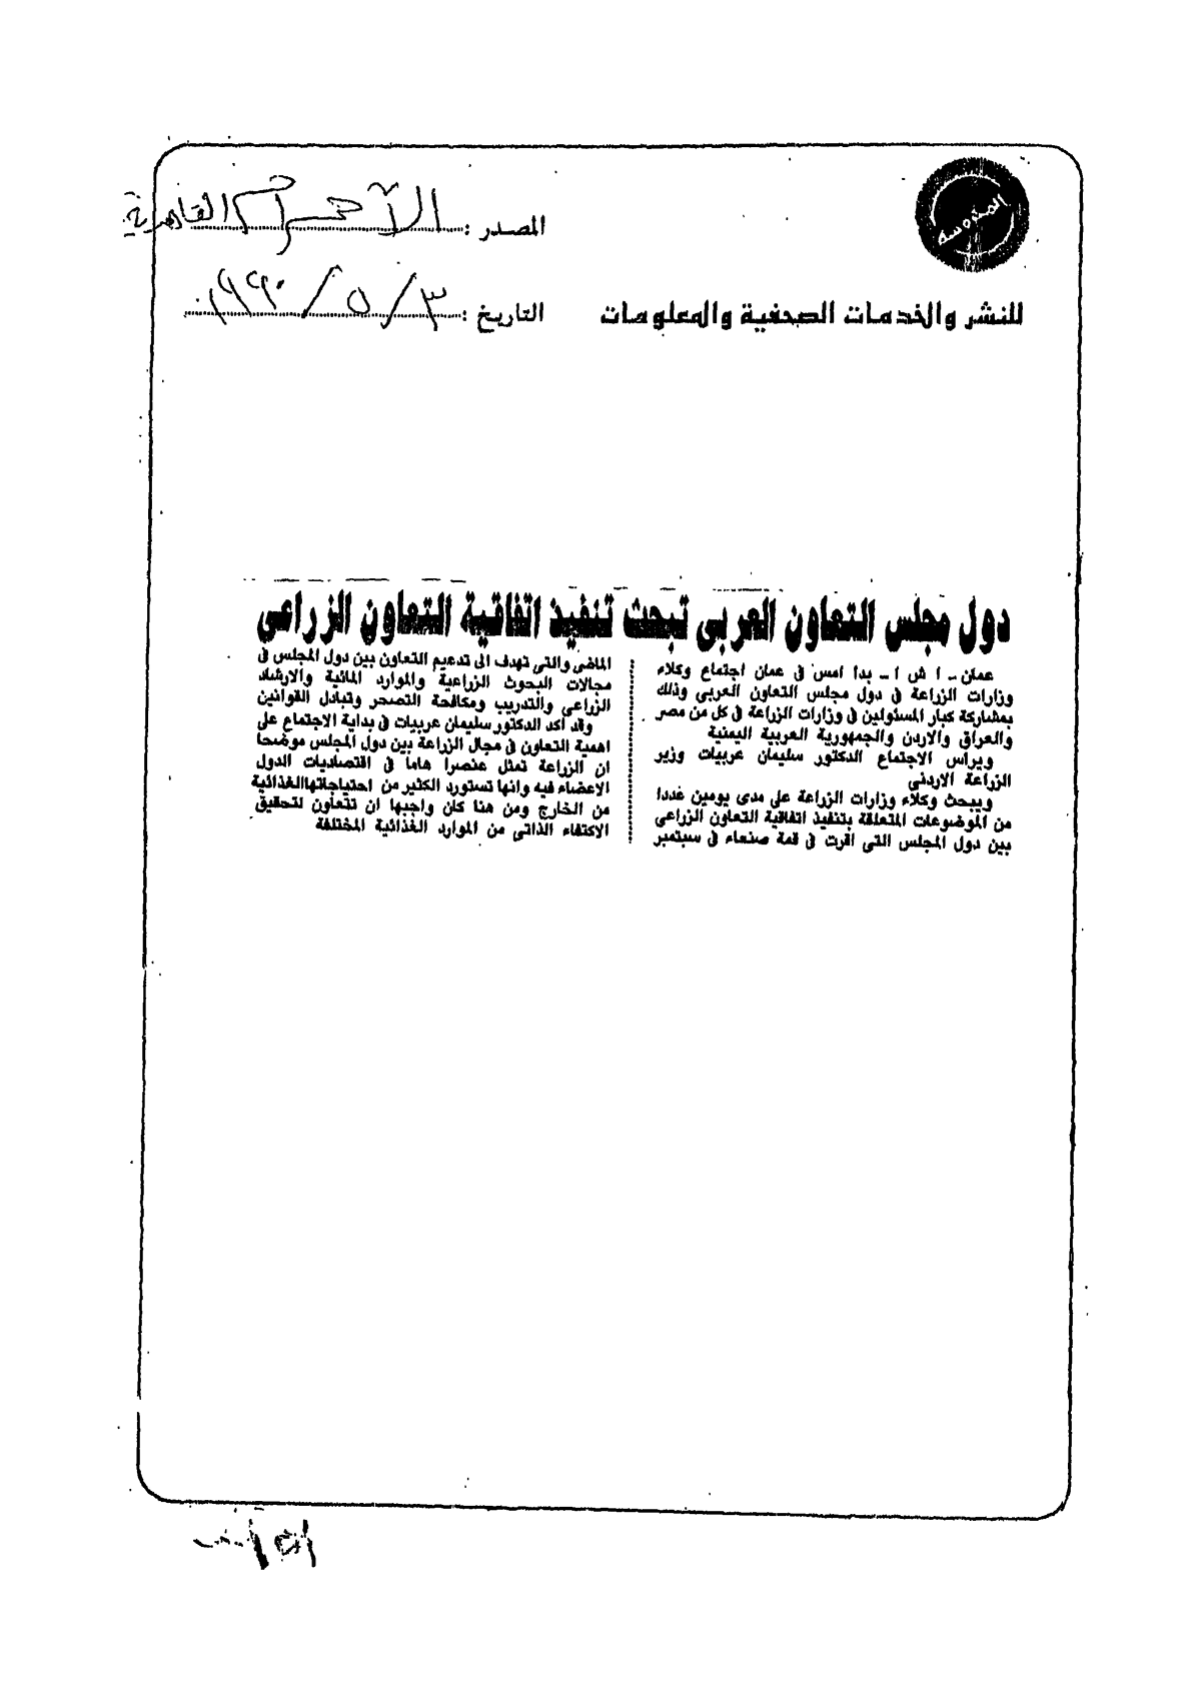 المحروسة
المصدر : الأهرام القاهرية
للنشر والخدمات الصحفية والمعلومات
التاريخ : ٣ / ٥ / ١٩٩٠
دول مجلس التعاون العربى تبحث تنفيذ اتفاقية التعاون الزراعى
عمان - ا ش ا - بدا امس فى عمان اجتماع وكلاء
وزارات الزراعة فى دول مجلس التعاون العربى وذلك
بمشاركة كبار المسئولين فى وزارات الزراعة فى كل من مصر
والعراق والاردن والجمهورية العربية اليمنية
ويراس الاجتماع الدكتور سليمان عربيات وزير
الزراعة الاردنى
ويبحث وكلاء وزارات الزراعة على مدى يومين عددا
من الموضوعات المتعلقة بتنفيذ اتفاقية التعاون الزراعى
بين دول المجلس التى اقرت فى قمة صنعاء فى سبتمبر
الماضى والتى تهدف الى تدعيم التعاون بين دول المجلس فى
مجالات البحوث الزراعية والموارد المائية والارشاد
الزراعى والتدريب ومكافحة التصحر وتبادل القوانين
وقد اكد الدكتور سليمان عربيات فى بداية الاجتماع على
اهمية التعاون فى مجال الزراعة بين دول المجلس موضحا
ان الزراعة تمثل عنصرا هاما فى اقتصاديات الدول
الاعضاء فيه وانها تستورد الكثير من احتياجاتهاالغذائية
من الخارج ومن هنا كان واجبها ان تتعاون لتحقيق
الاكتفاء الذاتى من الموارد الغذائية المختلفة